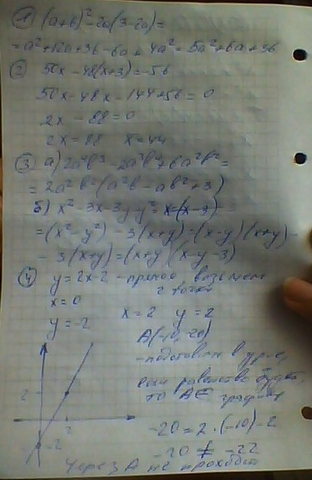 ① (a+6)² - 2a(3-2a) =
= a² + 12a + 36 - 6a + 4a² = 5a² + 6a + 36
② 50x - 48(x+3) = -56
50x - 48x - 144 + 56 = 0
2x - 88 = 0
2x = 88 x = 44
③ а)
= 2a²b²(a²b - ab² + 3)
б) x² - 3x - 3y - y² =
= (x² - y²) - 3(x+y) = (x-y)(x+y) -
- 3(x+y) = (x+y)(x-y-3)
④ y = 2x-2 - прямая возьмем
2 точки
x = 0
y = -2 x = 2 y = 2
A(-10, -20)
- подставим в
если равенство
то A ∈ графику
-20 = 2·(-10) - 2
-20 ≠ -22
2
2
-2
Через A не проходит